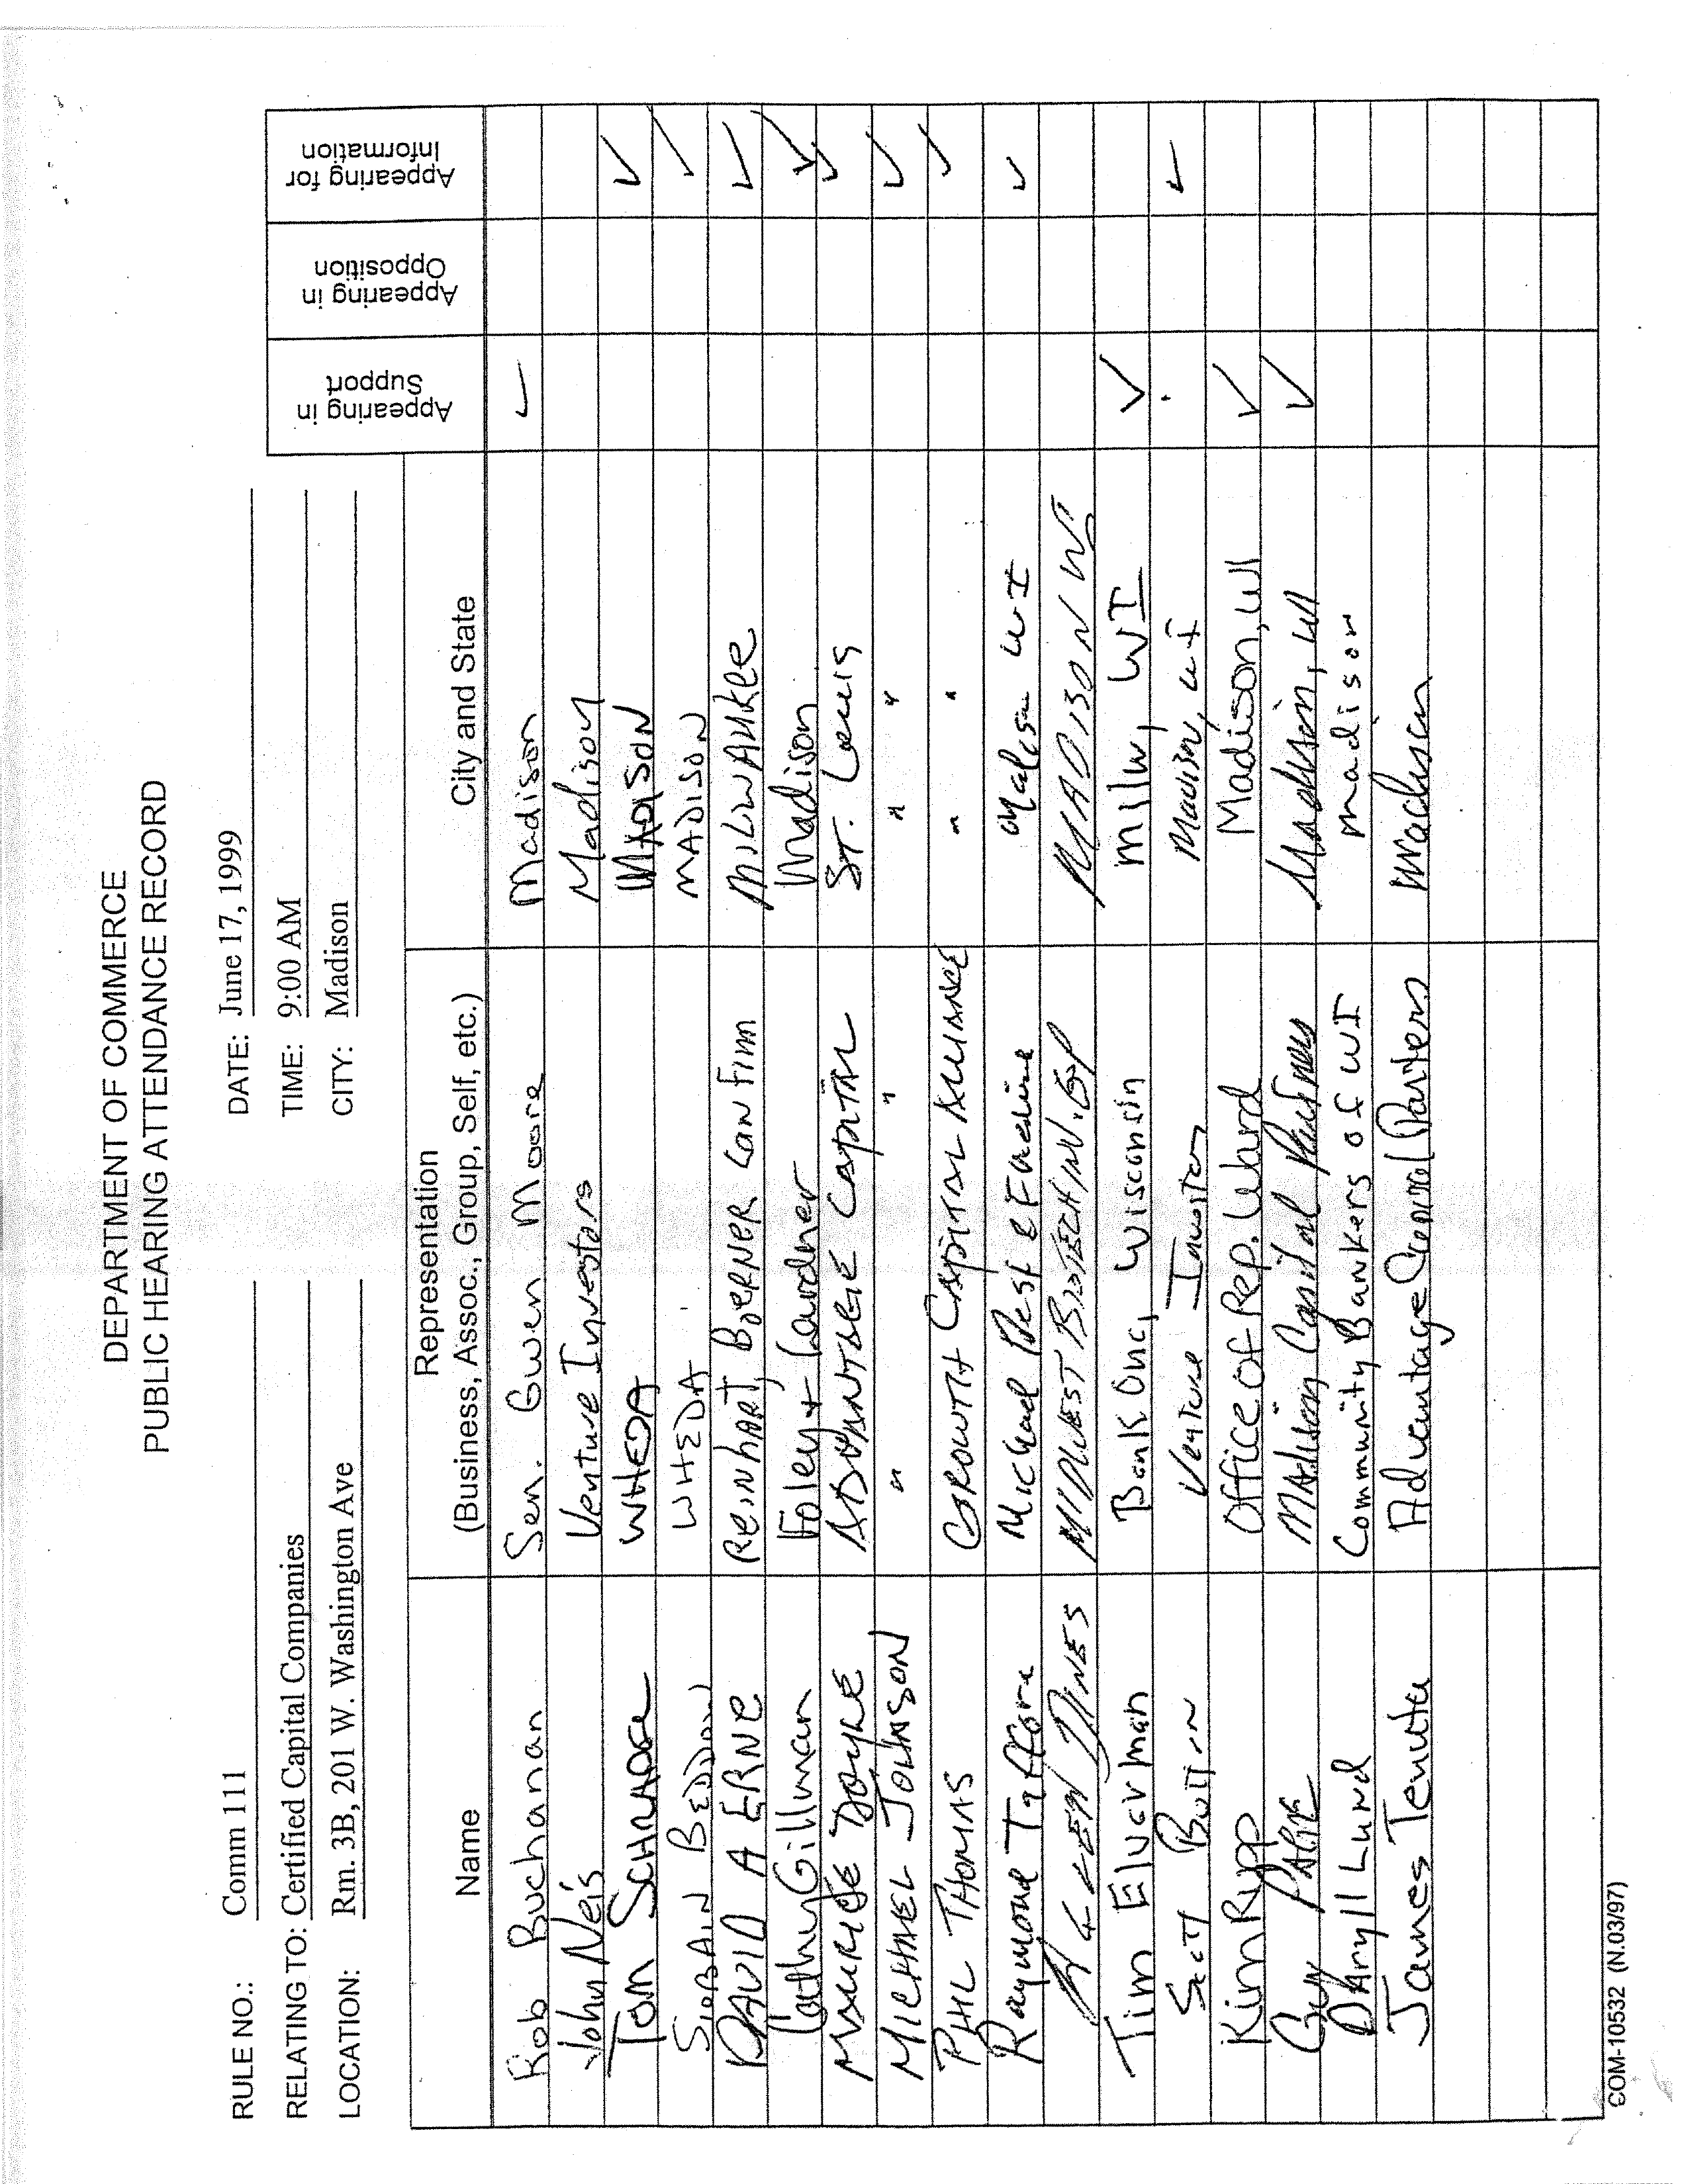 DEPARTMENT OF COMMERCE
PUBLIC HEARING ATTENDANCE RECORD
RULE NO.: Comm 111 DATE: June 17, 1999
RELATING TO: Certified Capital Companies TIME: 9:00 AM
LOCATION: Rm. 3B, 201 W. Washington Ave CITY: Madison
Name Representation (Business, Assoc., Group, Self, etc.) City and State Appearing in Support Appearing in Opposition Appearing for Information
Rob Buchanan Sen. Gwen Moore Madison ✓
John Neis Venture Investors Madison
Tom SCHRADER WHEDA MADISON ✓
SIOBAIN BEDDOW WHEDA MADISON ✓
DAVID A ERNE Reinhart, BOERNER Law Firm MILWAUKEE ✓
Cathy Gillman Foley + Lardner Madison ✓
MAURICE DOYLE ADVANTAGE CAPITAL ST. Louis ✓
MICHAEL JOHNSON " " " " ✓
PHIL THOMAS GROWTH CAPITAL ALLIANCE " " ✓
Raymond Taffora Michael Best & Friedrich Madison WI ✓
DINES MIDWEST BIOTECH INV. GP MADISON WI
Tim Elverman Bank One, Wisconsin Milw, WI ✓
Scott Button Venture Investors Madison, WI ✓
Kim Rupp Office of Rep. Ward Madison, WI ✓
Madison Capital Partners Madison, WI ✓
DAryll Lund Community Bankers of WI Madison
James Tenuta Advantage Capital Partners Madison
COM-10532 (N.03/97)